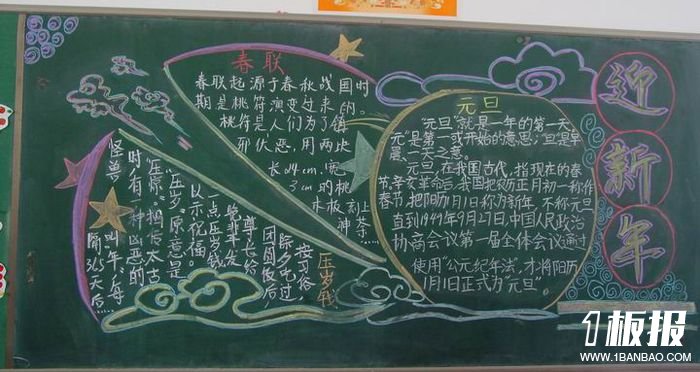 春联
春联起源于春秋战国时
期是桃符演变过来的,
桃符是人们为了镇
邪伏恶,用两块
长4cm,宽
3cm的桃
木板刻上
神荼…
元旦
"元旦"就是一年的第一天,
"元"是第一或开始的意思;"旦是早
晨、一天之意。
元旦,在我国古代,指现在的春
节,辛亥革命后,我国把农历正月初一称作
春节,把阳历1月1日称为新年,不称元旦
直到1949年9月27日,中国人民政治
协商会议第一届全体会议通过
使用"公元纪年法",才将阳历
1月1日正式为元旦"
迎
新
年
压岁钱
按习俗,
除夕吃过
团圆饭后
尊长给
晚辈分发
一点压岁钱
以示祝福。
"压岁"原意是
"压惊",相传太古
时,有一种凶恶的
怪兽
叫"年",每
隔365天后…
1板报
WWW.1BANBAO.COM